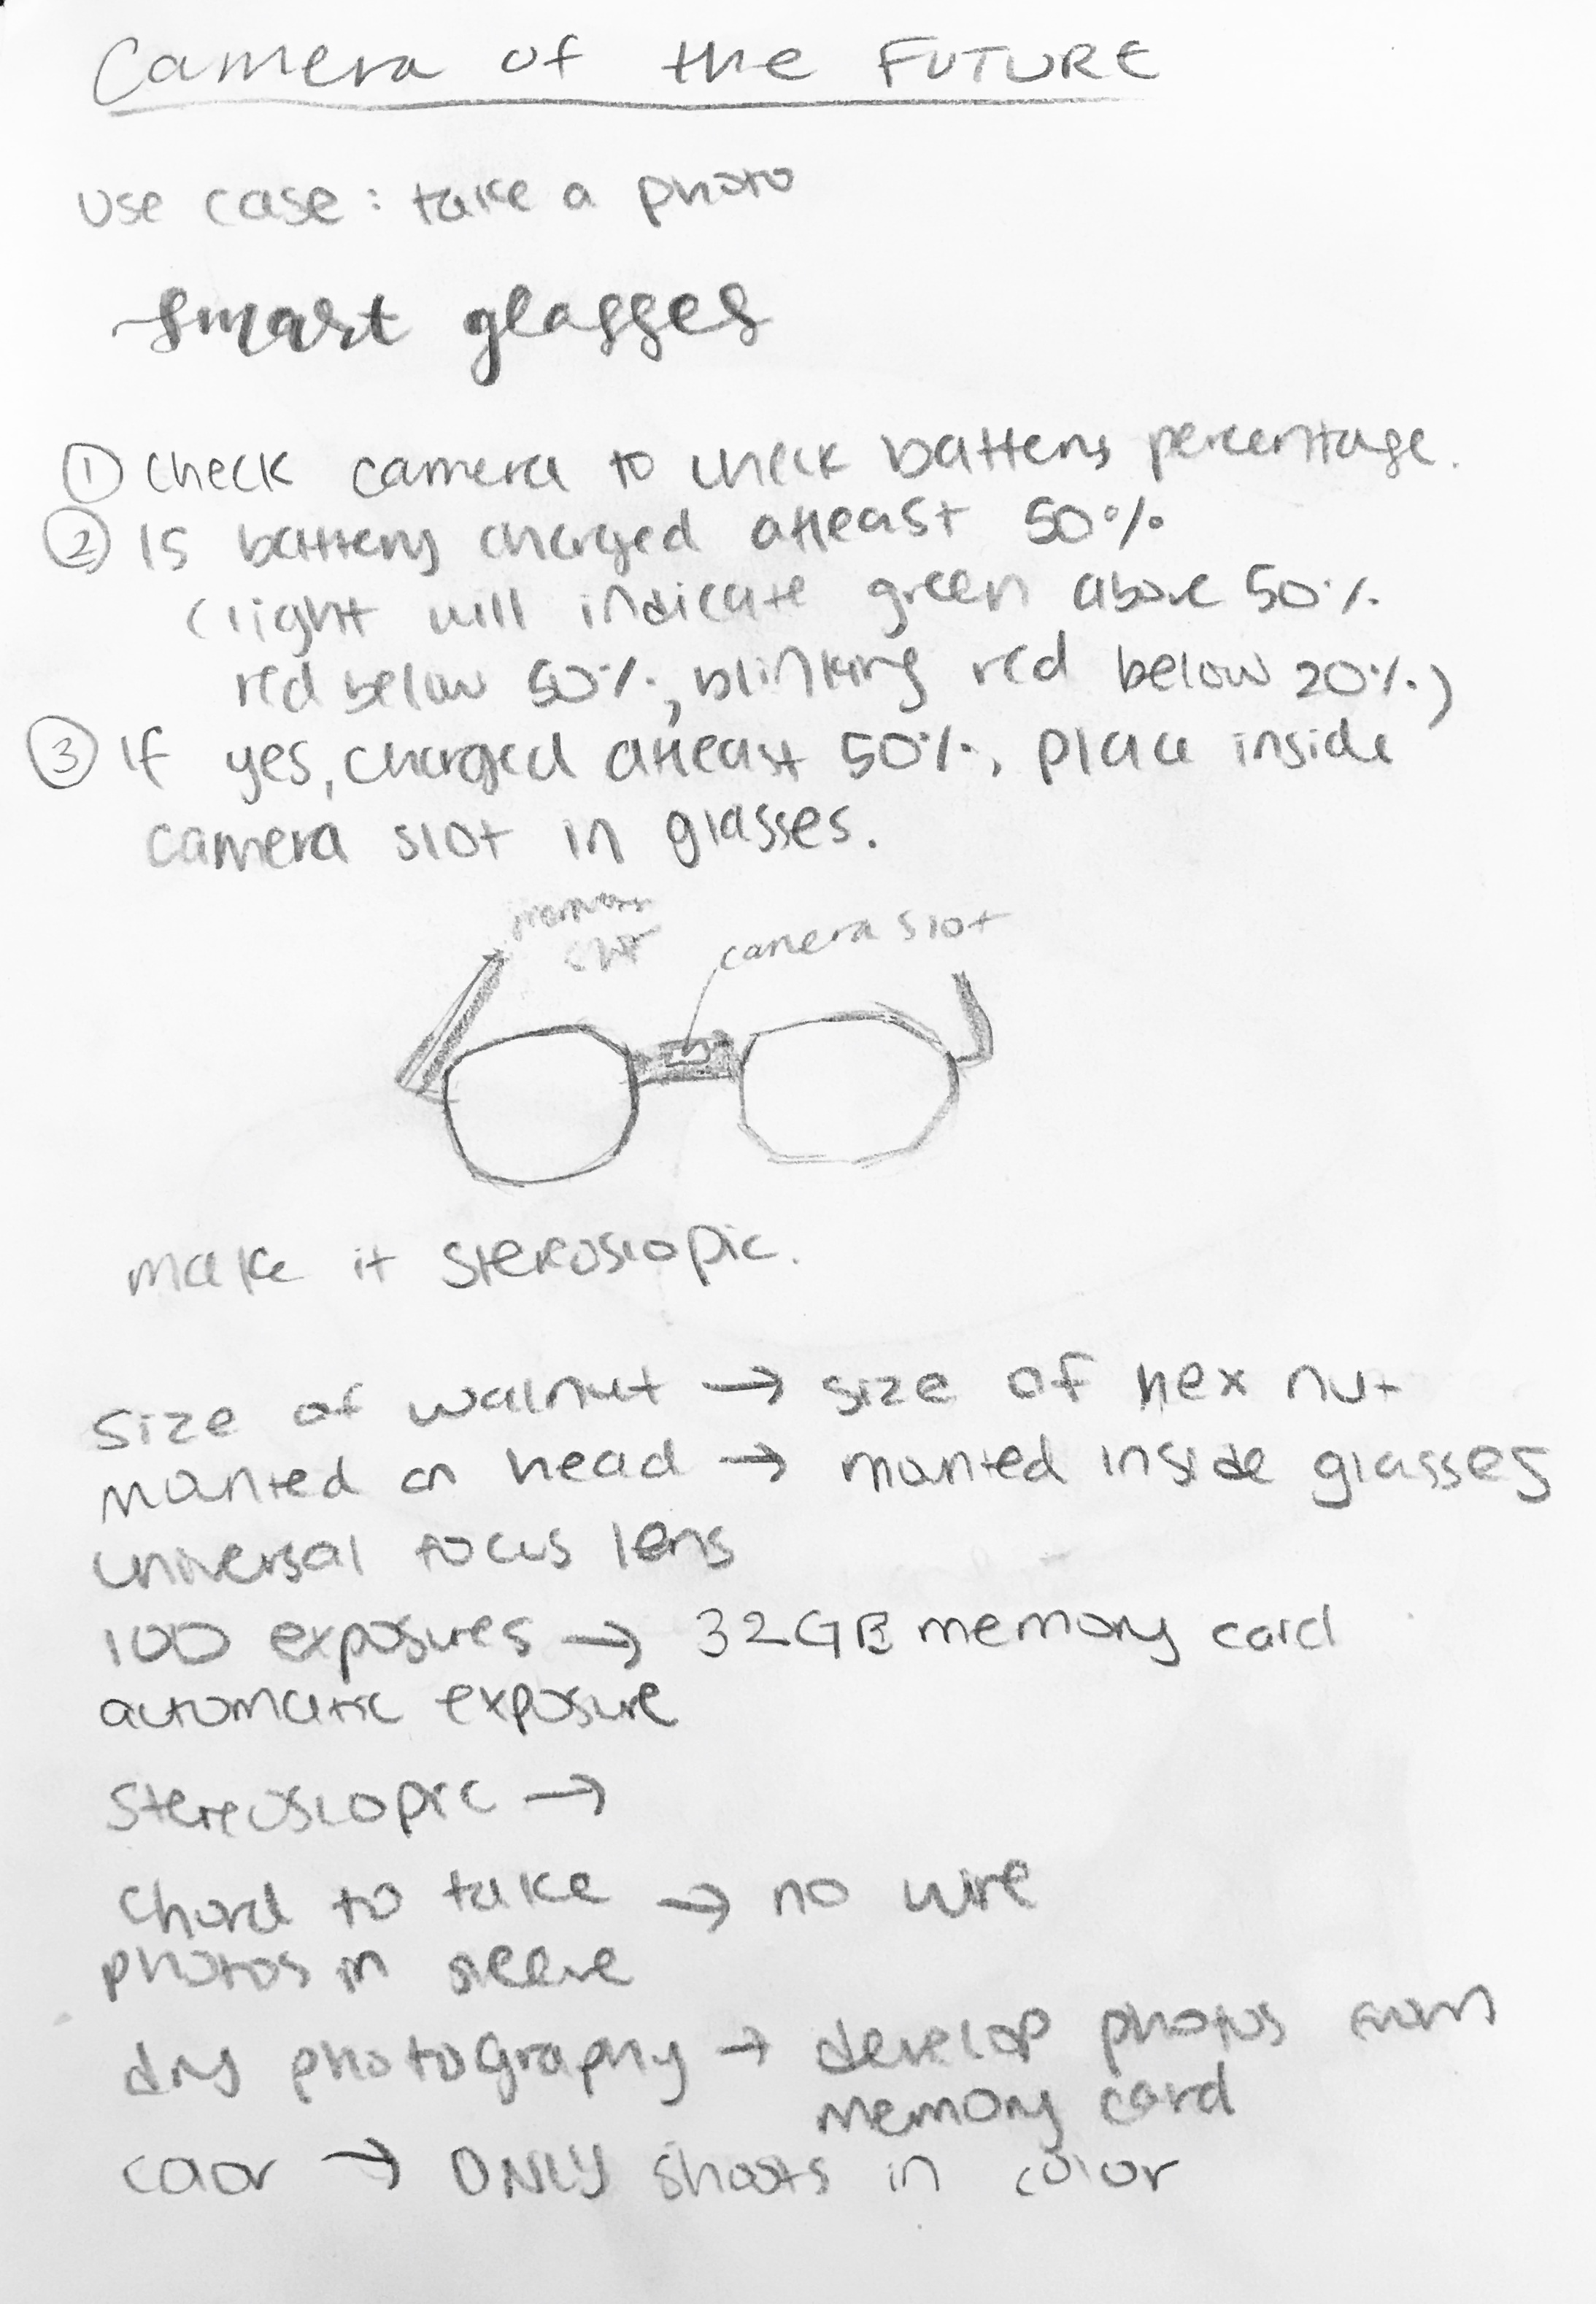 Camera of the FUTURE
use case: take a photo
smart glasses
① Check camera to check battery percentage.
② Is battery charged atleast 50%
(light will indicate green above 50%
red below 50%, blinking red below 20%)
③ If yes, charged atleast 50%, place inside
camera slot in glasses.
memory
camera slot
make it stereoscopic.
size of walnut → size of hex nut
mounted on head → mounted inside glasses
universal focus lens
100 exposures → 32GB memory card
automatic exposure
Stereoscopic →
Chord to take → no wire
photos in sleeve
dry photography → develop photos from
memory card
color → ONLY shoots in color